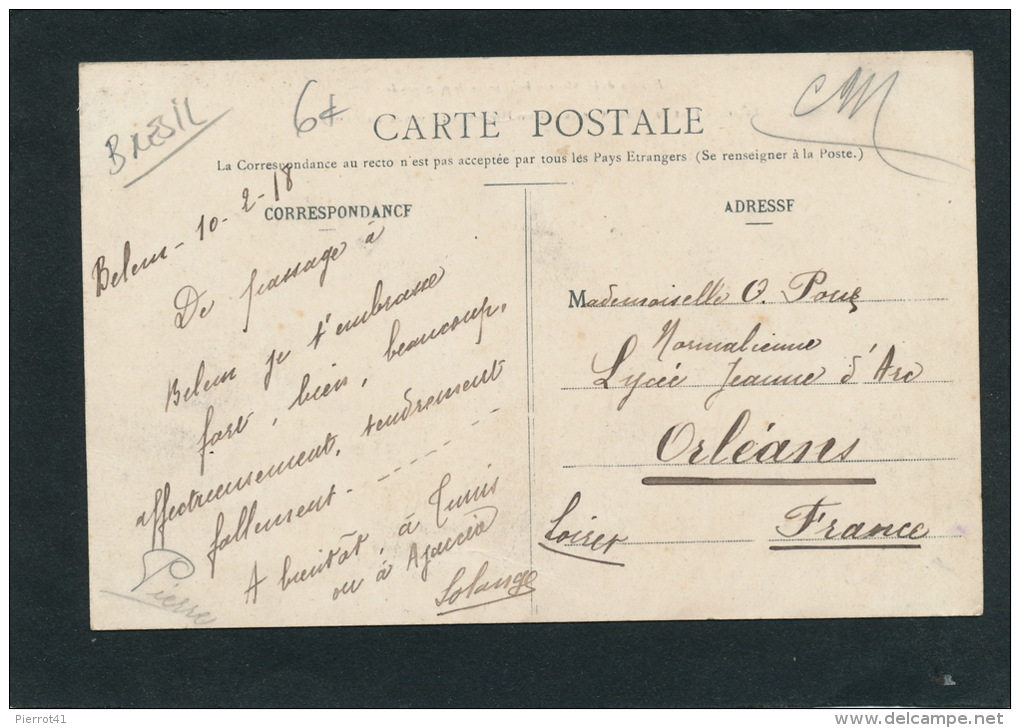 BRÉSIL
6€
CM
CARTE POSTALE
La Correspondance au recto n'est pas acceptée par tous les Pays Etrangers (Se renseigner à la Poste.)
CORRESPONDANCE
Belem - 10-2-18
De passage à
Belem je t'embrasse
fort, bien, beaucoup,
affectueusement, tendrement
follement - - - - - -
A bientôt, à Tunis
ou à Ajaccio
Solange
Pierre
ADRESSE
Mademoiselle O. Pons
Normalienne
Lycée Jeanne d'Arc
Orléans
Loiret
France
Pierrot41
www.delcampe.net